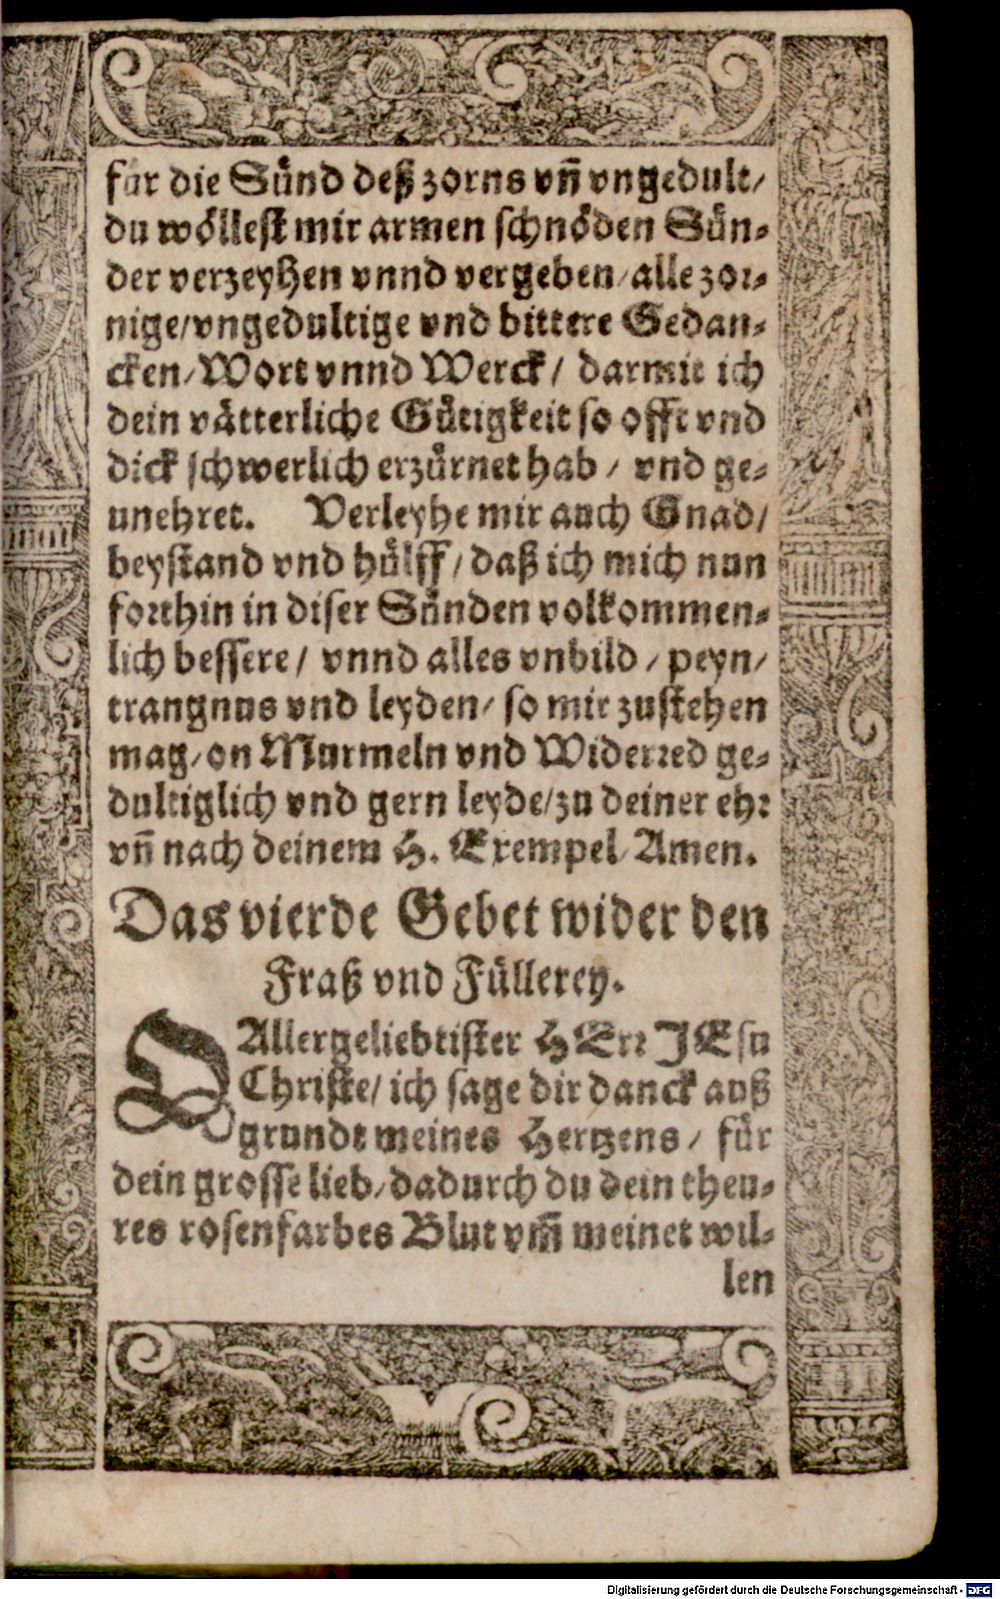 für die Sünd deß zorns vn̄ vngedult/
du wöllest mir armen schnöden Sün-
der verzeyhen vnnd vergeben/alle zor-
nige/vngedultige vnd bittere Gedan-
cken/Wort vnnd Werck/ darmit ich
dein vätterliche Gütigkeit so offt vnd
dick schwerlich erzürnet hab/ vnd ge-
unehret. Verleyhe mir auch Gnad/
beystand vnd hülff/daß ich mich nun
forthin in diser Sünden volkommen-
lich bessere/ vnnd alles vnbild/peyn/
trangnus vnd leyden/so mir zustehen
mag/on Murmeln vnd Widerred ge-
dultiglich vnd gern leyde/zu deiner ehr
vn̄ nach deinem H. Exempel/Amen.
Das vierde Gebet wider den
Fraß vnd Füllerey.
O Allergeliebtister HErr JEsu
Christe/ich sage dir danck auß
grundt meines Hertzens/ für
dein grosse lieb/dadurch du dein theu-
res rosenfarbes Blut vm̄ meinet wil-
len
Digitalisierung gefördert durch die Deutsche Forschungsgemeinschaft - DFG